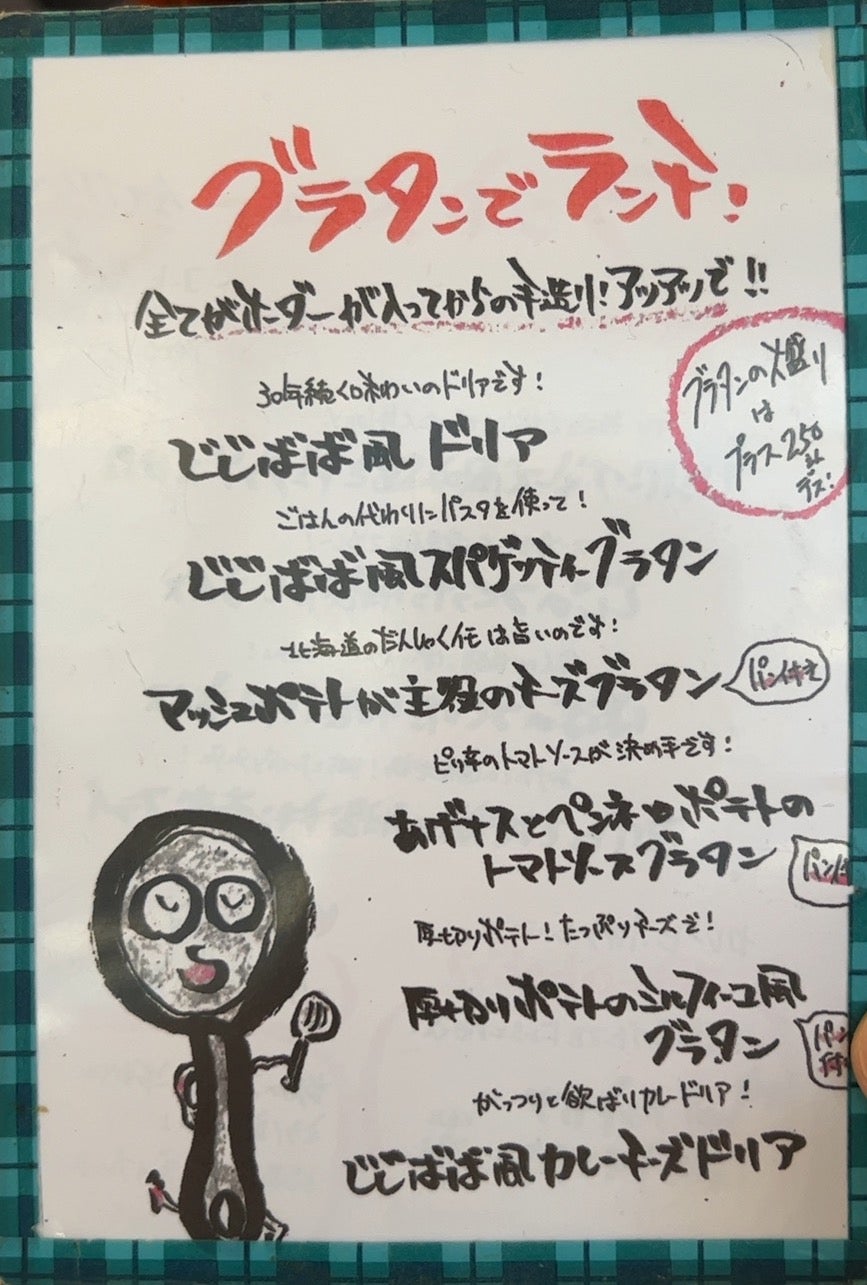 グラタンでランチ!
全てがオーダーが入ってからの手造り!アツアツで!!
グラタンの大盛り
は
プラス250
デス!
30年続く味わいのドリアです!
じじばば風 ドリア
ごはんの代わりにパスタを使って!
じじばば風スパゲッティーグラタン
北海道のだんしゃくイモは旨いのです!
マッシュポテトが主役のチーズグラタン
パン付き
ピリ辛のトマトソースが決め手です!
あげナスとペンネとポテトの
トマトソースグラタン
パン
厚切りポテト!たっぷりチーズで!
厚切りポテトのミルフィーユ風
グラタン
パン
付
がっつりと欲ばりカレードリア!
じじばば風カレーチーズドリア